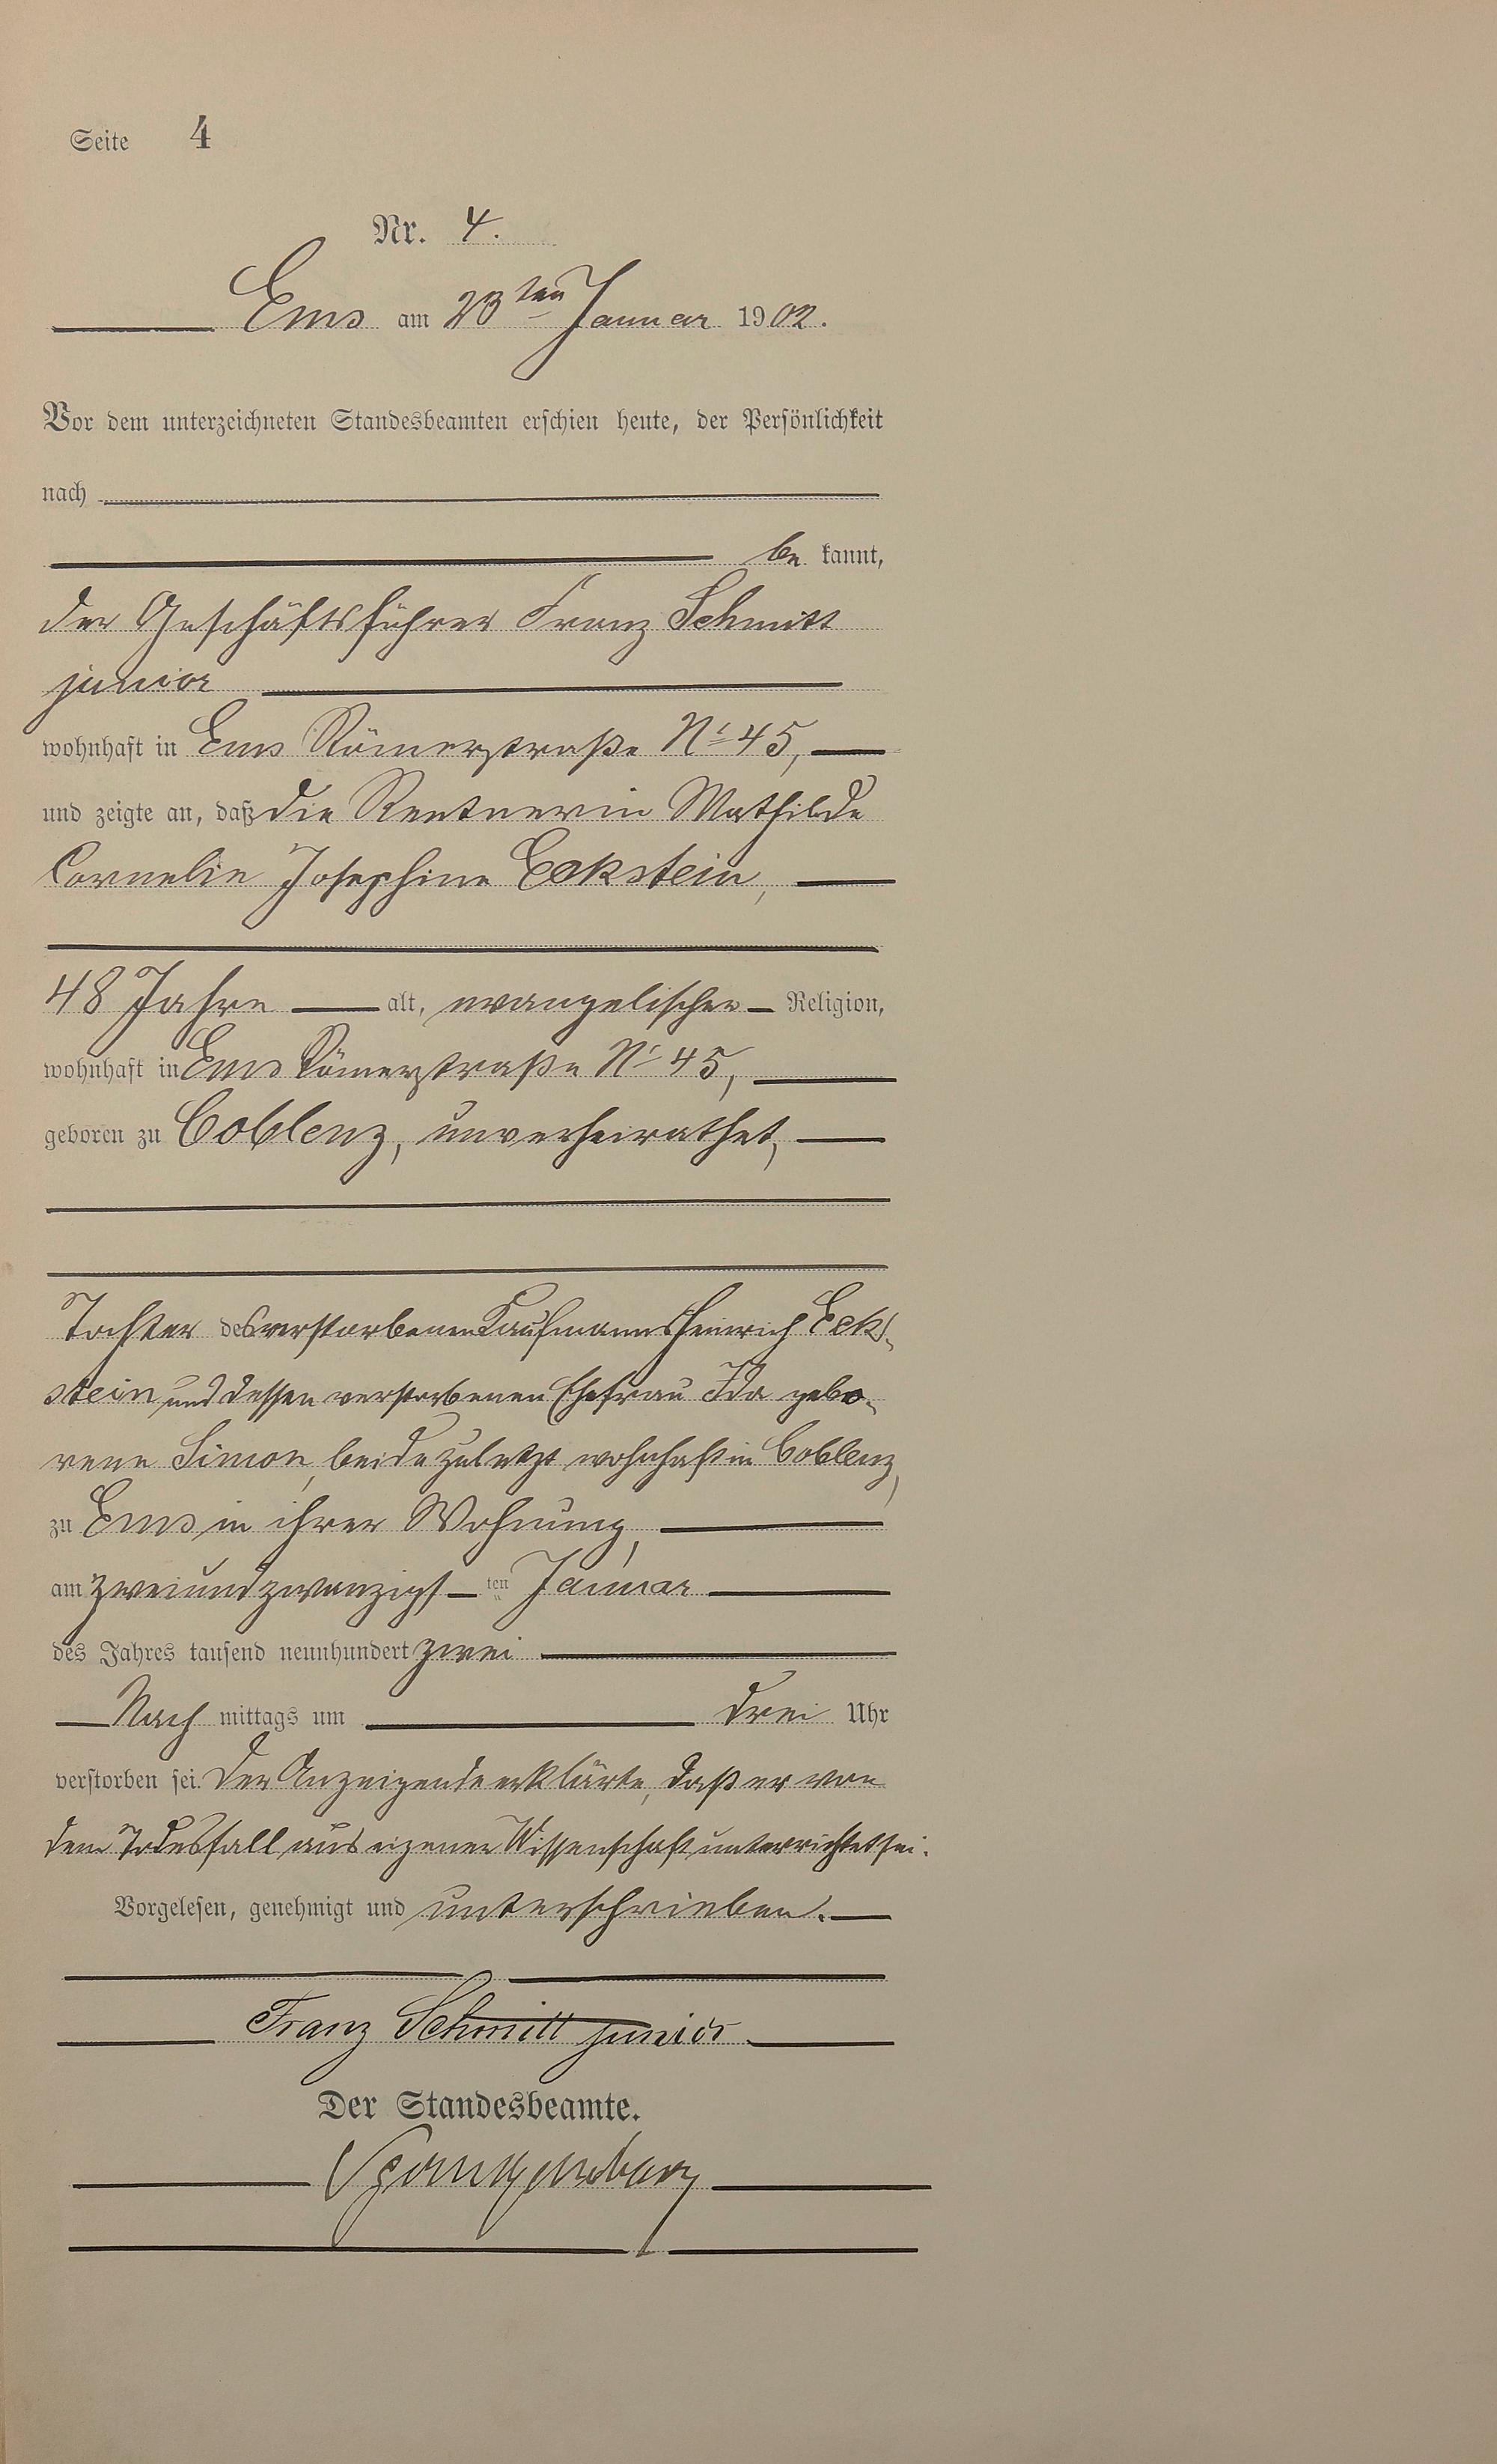 Seite 4
Nr. 4.
Ems am 23ten Januar 1902.
Vor dem unterzeichneten Standesbeamten erschien heute, der Persönlichkeit
nach
be kannt,
der Geschäftsführer Franz Schmitt
junior
wohnhaft in Ems Römerstraße No 45,
und zeigte an, daß die Rentnerin Mathilde
Cornelie Josephine Eckstein,
48 Jahre alt, evangelischer Religion,
wohnhaft in Ems Römerstraße No 45,
geboren zu Coblenz, unverheirathet,
Tochter des verstorbenen Kaufmanns Heinrich Eck-
stein und dessen verstorbenen Ehefrau Ida gebo-
rene Simon, beide zuletzt wohnhaft in Coblenz,
zu Ems in ihrer Wohnung,
am zweiundzwanzigs ten Januar
des Jahres tausend neunhundert zwei
Nach mittags um drei Uhr
verstorben sei. Der Anzeigende erklärte, daß er von
dem Todesfall aus eigener Wissenschaft unterrichtet sei.
Vorgelesen, genehmigt und unterschrieben.
Franz Schmitt junior
Der Standesbeamte.